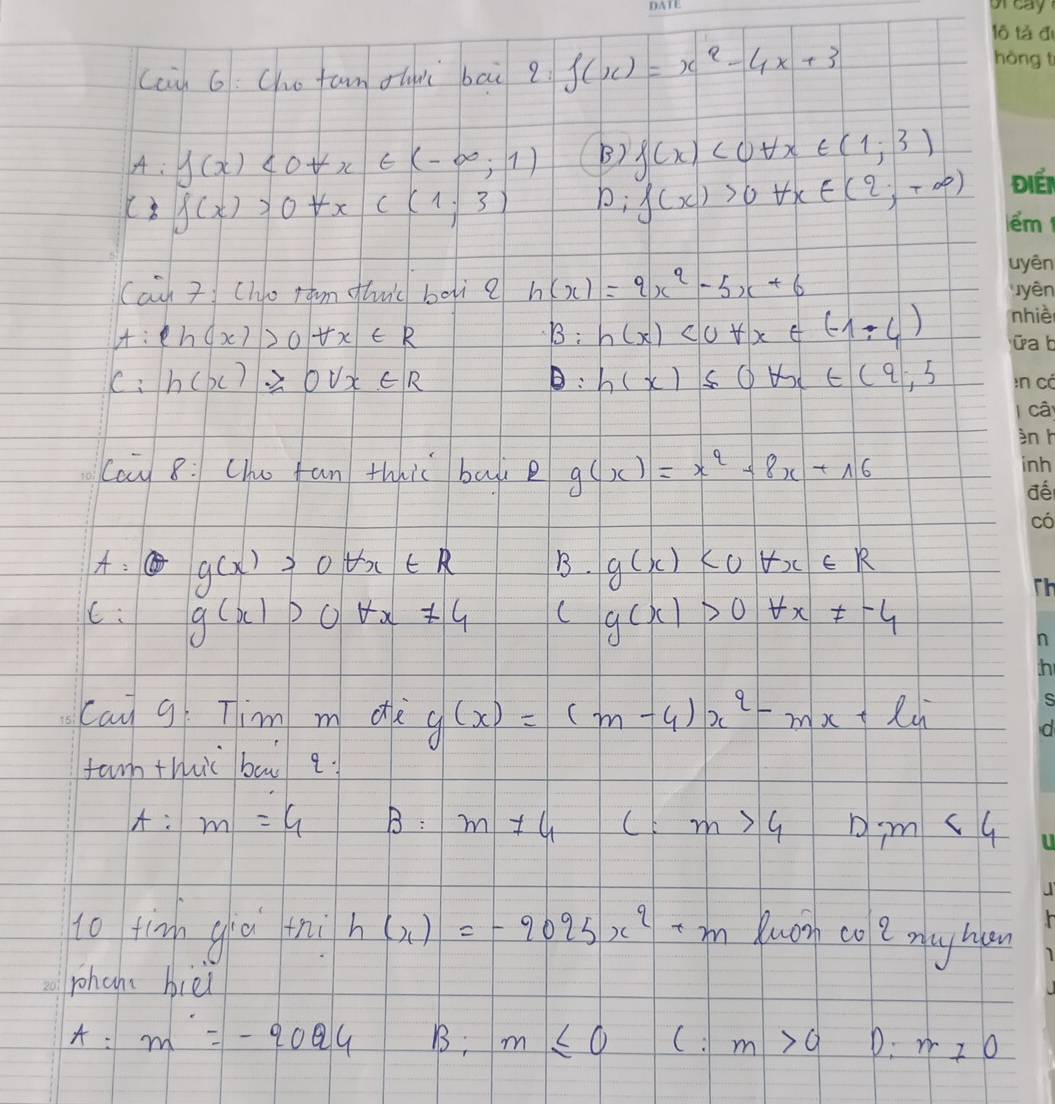 DATE
Câu 6: Cho tam thức bậc 2: f(x) = x² - 4x + 3
A: f(x) < 0 ∀x ∈ (-∞; 1) B) f(x) < 0 ∀x ∈ (1; 3)
C: f(x) > 0 ∀x ∈ (1; 3) D: f(x) > 0 ∀x ∈ (2; +∞)
Câu 7: Cho tam thức bậc 2 h(x) = 2x² - 5x + 6
A: h(x) > 0 ∀x ∈ R B: h(x) < 0 ∀x ∈ (-1; 4)
C: h(x) ≥ 0 ∀x ∈ R D: h(x) ≤ 0 ∀x ∈ (2; 5
Câu 8: Cho tam thức bậc 2 g(x) = x² + 8x + 16
A: g(x) > 0 ∀x ∈ R B. g(x) < 0 ∀x ∈ R
C: g(x) > 0 ∀x ≠ 4 C g(x) > 0 ∀x ≠ -4
Câu 9: Tìm m để g(x) = (m - 4)x² - mx + là
tam thức bậc 2:
A: m = 4 B: m ≠ 4 C: m > 4 D: m < 4
10 tìm giá trị h(x) = -2025x² + m luôn có 2 nghiệm
phân biệt
A: m = -2024 B: m ≤ 0 C: m > 0 D: m ≥ 0